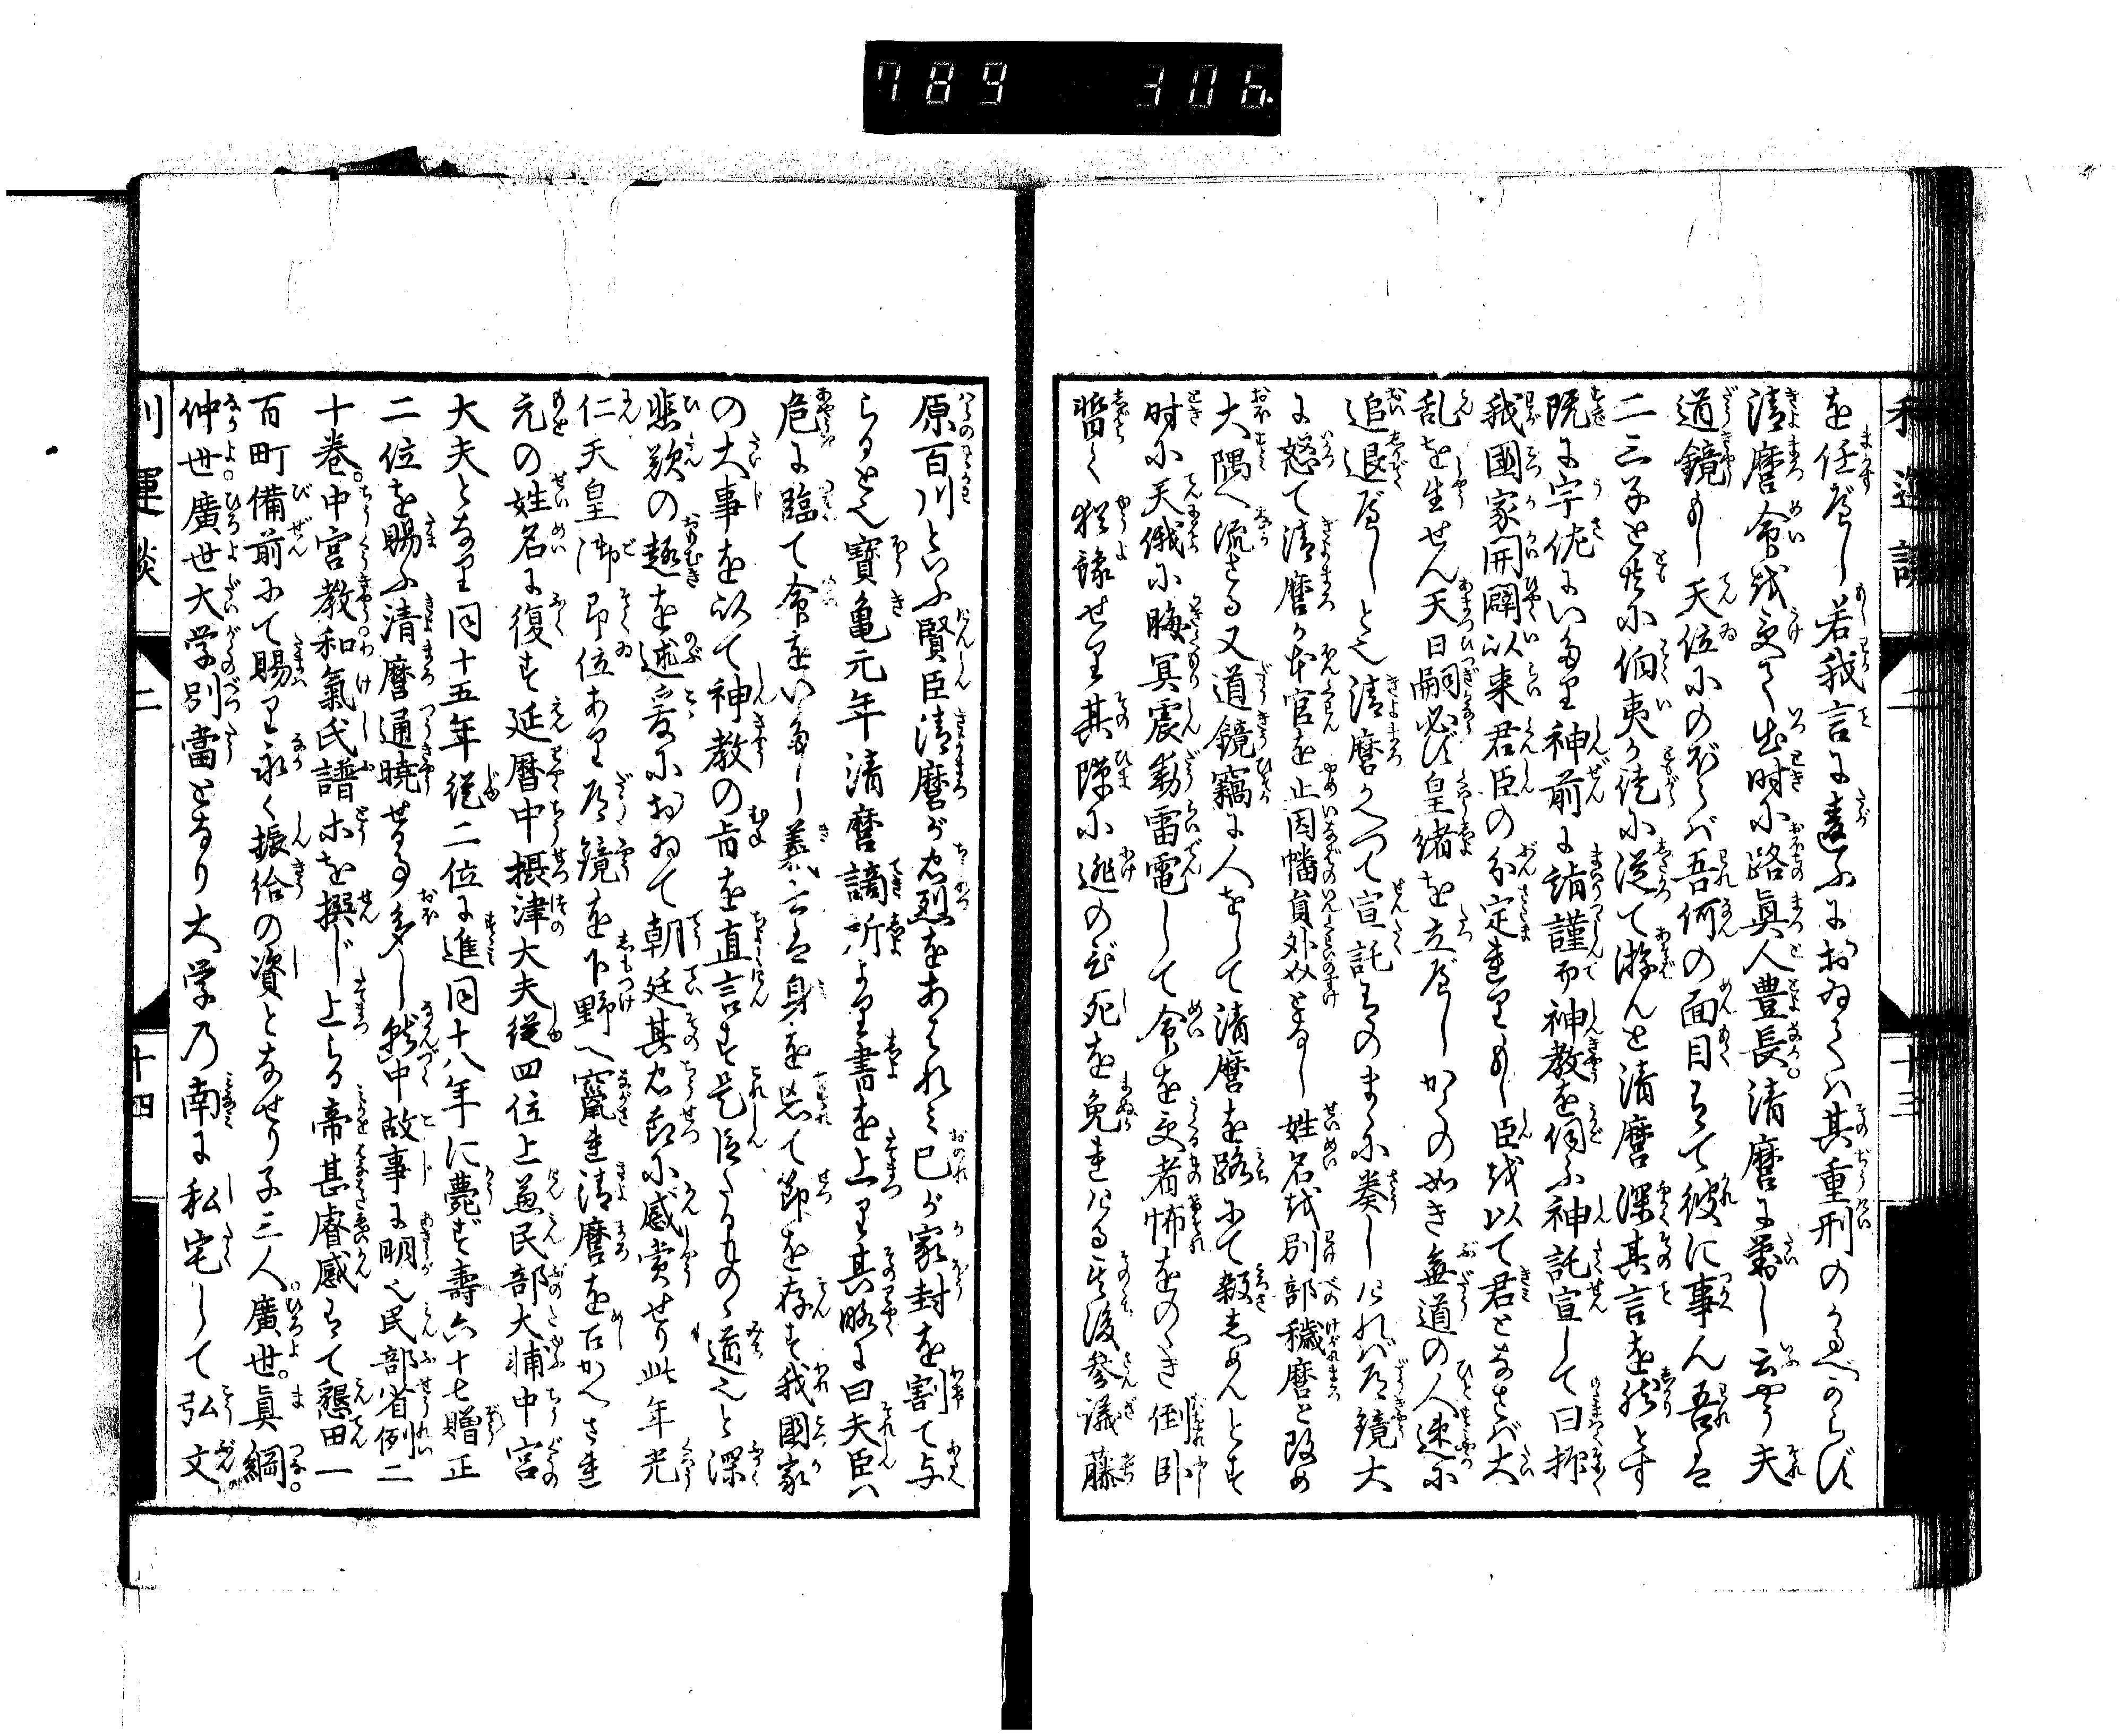 789 306
を任べし若我言に違ふにおゐては其重刑のかるべからず
清麿命を受て出時に路眞人豊長清麿に對し云やう夫
道鏡もし天位にのぼらば吾何の面目有て彼に事ん吾は
二三子と共に伯夷が徒に從て游んと清麿深其言を然とす
既に宇佐にいたり神前に詣謹而神教を伺ふ神託宣して曰抑
我國家開闢以来君臣の分定まれり臣を以て君となさば大
乱を生せん天日嗣必ず皇緒を立べしかくの如き無道の人速に
追退べしと也清麿かへつて宣託有のまゝに奏しければ道鏡大
に怒て清麿が本官を止因幡員外介となし姓名を別部穢麿と改め
大隅へ流さる又道鏡竊に人をして清麿を路にて殺しめんとす
时に天俄に晦冥震動雷電して命を受者怖をのゝき倒臥
暫く猶豫せり其隙に逃のび死を免れける其後參議藤
原百川といふ賢臣清麿が忠烈をあはれみ己が家封を割て与
らると也寳亀元年清麿謫所より書を上り其略に曰夫臣ハ
危に臨て命をいたし義士は身を忘て節を存す我國家
の大事を以て神教の旨を直言す是臣たるものゝ道也と深
悲歎の趣を述爰におゐて朝廷其忠節に感賞せり此年光
仁天皇御即位あり道鏡を下野へ竄せ清麿を召かへされ
元の姓名に復す延暦中摂津大夫従四位上兼民部大輔中宮
大夫となり同十五年従二位に進同十八年に薨ず壽六十七贈正
二位を賜ふ清麿通暁せる事多し就中故事に明也民部省例二
十巻。中宮教。和氣氏譜ホを撰じ上る帝甚睿感有て懇田一
百町備前にて賜り永く振給の資となせり子三人廣世。眞綱。
仲世。廣世大学別當となり大学乃南に私宅して弘文
二
十三
二
十四